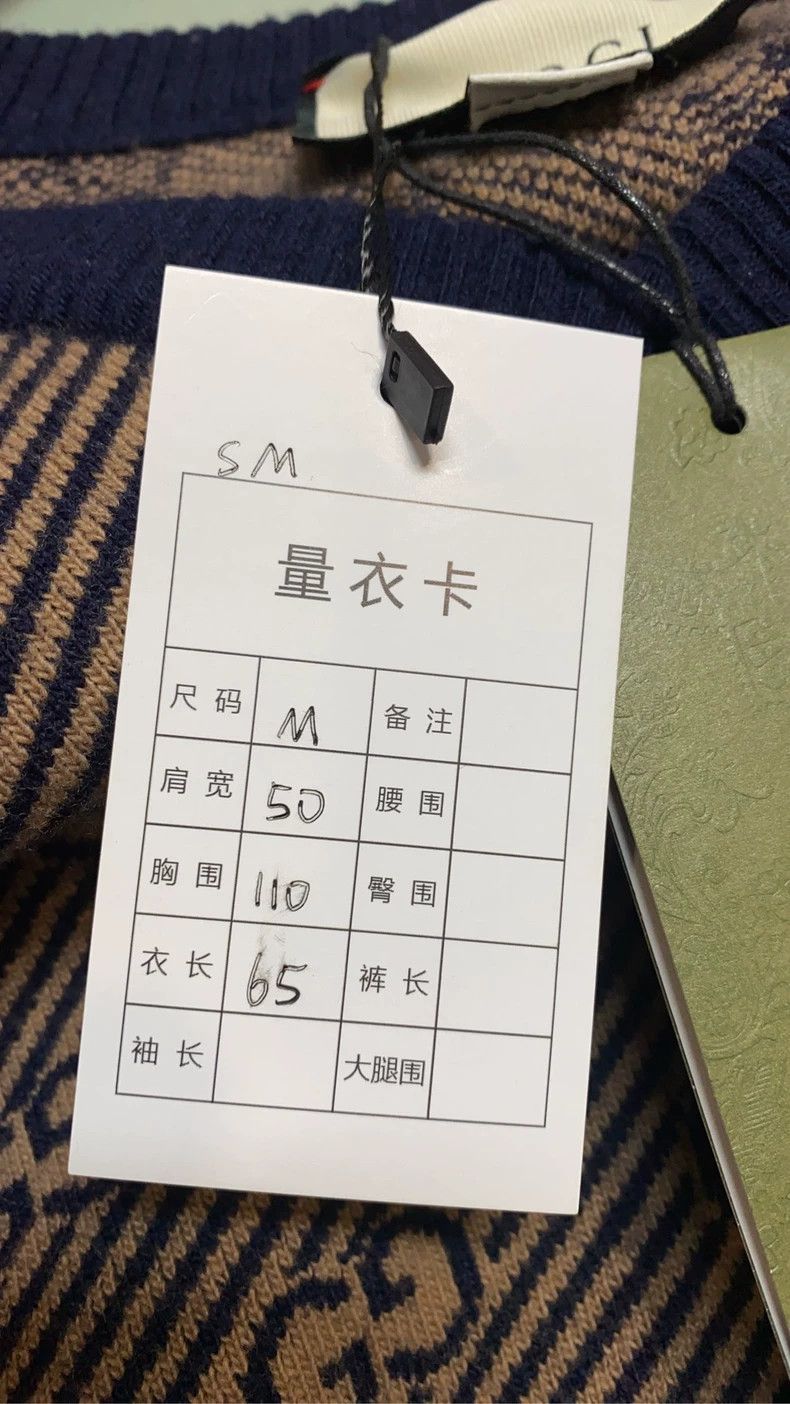 SM
量衣卡
尺码 M 备注
肩宽 50 腰围
胸围 110 臀围
衣长 65 裤长
袖长 大腿围